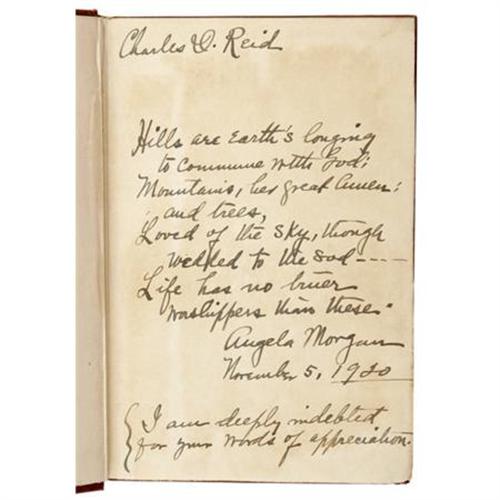 Charles D. Reid
Hills are Earth's longing
to commune with God;
Mountains, her great Amen;
and trees,
Loved of the sky, though
wedded to the sod ----
Life has no truer
worshippers than these.
Angela Morgan
November 5, 1920
I am deeply indebted
for your words of appreciation.